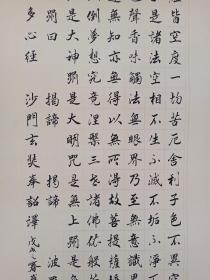 蘊皆空度一切苦厄舍利子色不異空
是諸法空相不生不滅不垢不淨
聲香味觸法無眼界乃至無意識
無知亦無得以無所得故菩提薩
倒夢想究竟涅槃三世諸佛依般
是大神咒是大明咒是無上咒是
咒曰 揭諦 揭諦 波羅
多心經 沙門玄奘奉詔譯 戊戌之春